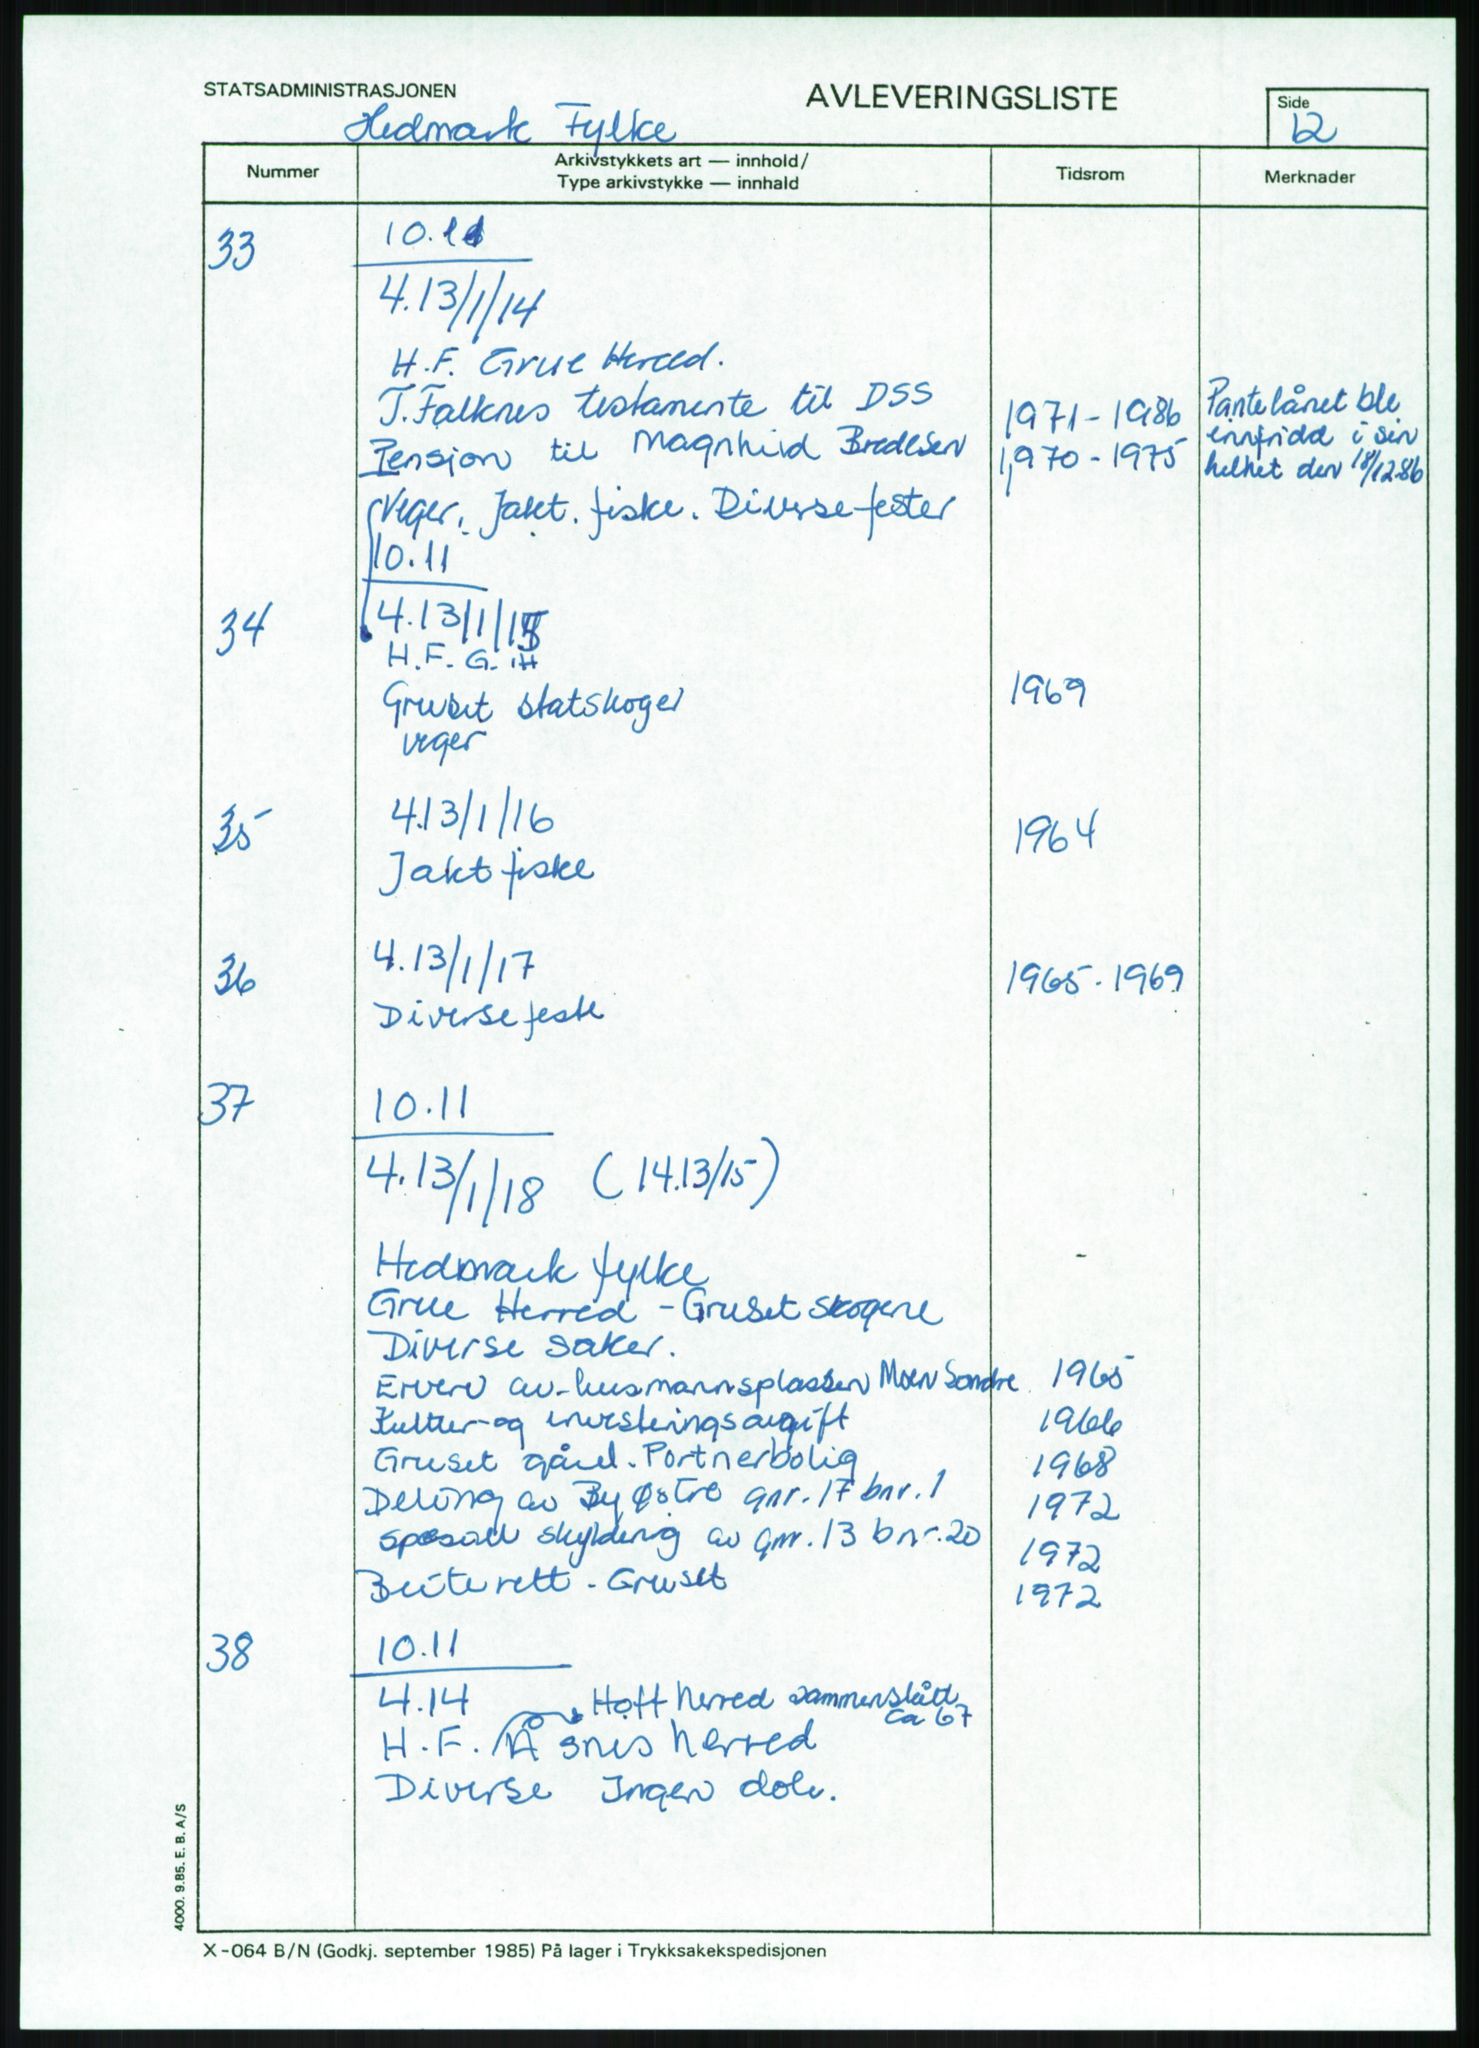 STATSADMINISTRASJONEN
AVLEVERINGSLISTE
Side
12
Hedmark Fylke
Nummer
Arkivstykkets art — innhold/
Type arkivstykke — innhald
Tidsrom
Merknader
33
10.11
4.13/1/14
H.F. Grue Herred.
J. Falknes testamente til DSS 1971-1986 Pantelånet ble
Pensjon til Magnhild Bredesen 1970-1975 innfridd i sin
helhet den 18/12-86
Veger, Jakt. fiske. Diverse fester
10.11
34 4.13/1/15
H.F. G.H
Gruset statskoger 1969
veger
35 4.13/1/16 1964
Jakt fiske
36 4.13/1/17 1965-1969
Diverse feste
37 10.11
4.13/1/18 (14.13/15)
Hedmark fylke
Grue Herred - Gruset skogene
Diverse saker.
Erverv av husmannsplassen Moen Søndre 1965
Kultur- og investeringsavgift 1966
Gruset gård. Portnerbolig 1968
Deling av By Østre gnr. 17 bnr. 1 1972
skyldning av gnr. 13 bnr. 20 1972
Beiterett - Gruset 1972
38 10.11
4.14 Hoff herred sammenslått
ca 67
H.F. Åsnes herred
Diverse Ingen dok.
4000. 9.85. E. B. A/S
X-064 B/N (Godkj. september 1985) På lager i Trykksakekspedisjonen